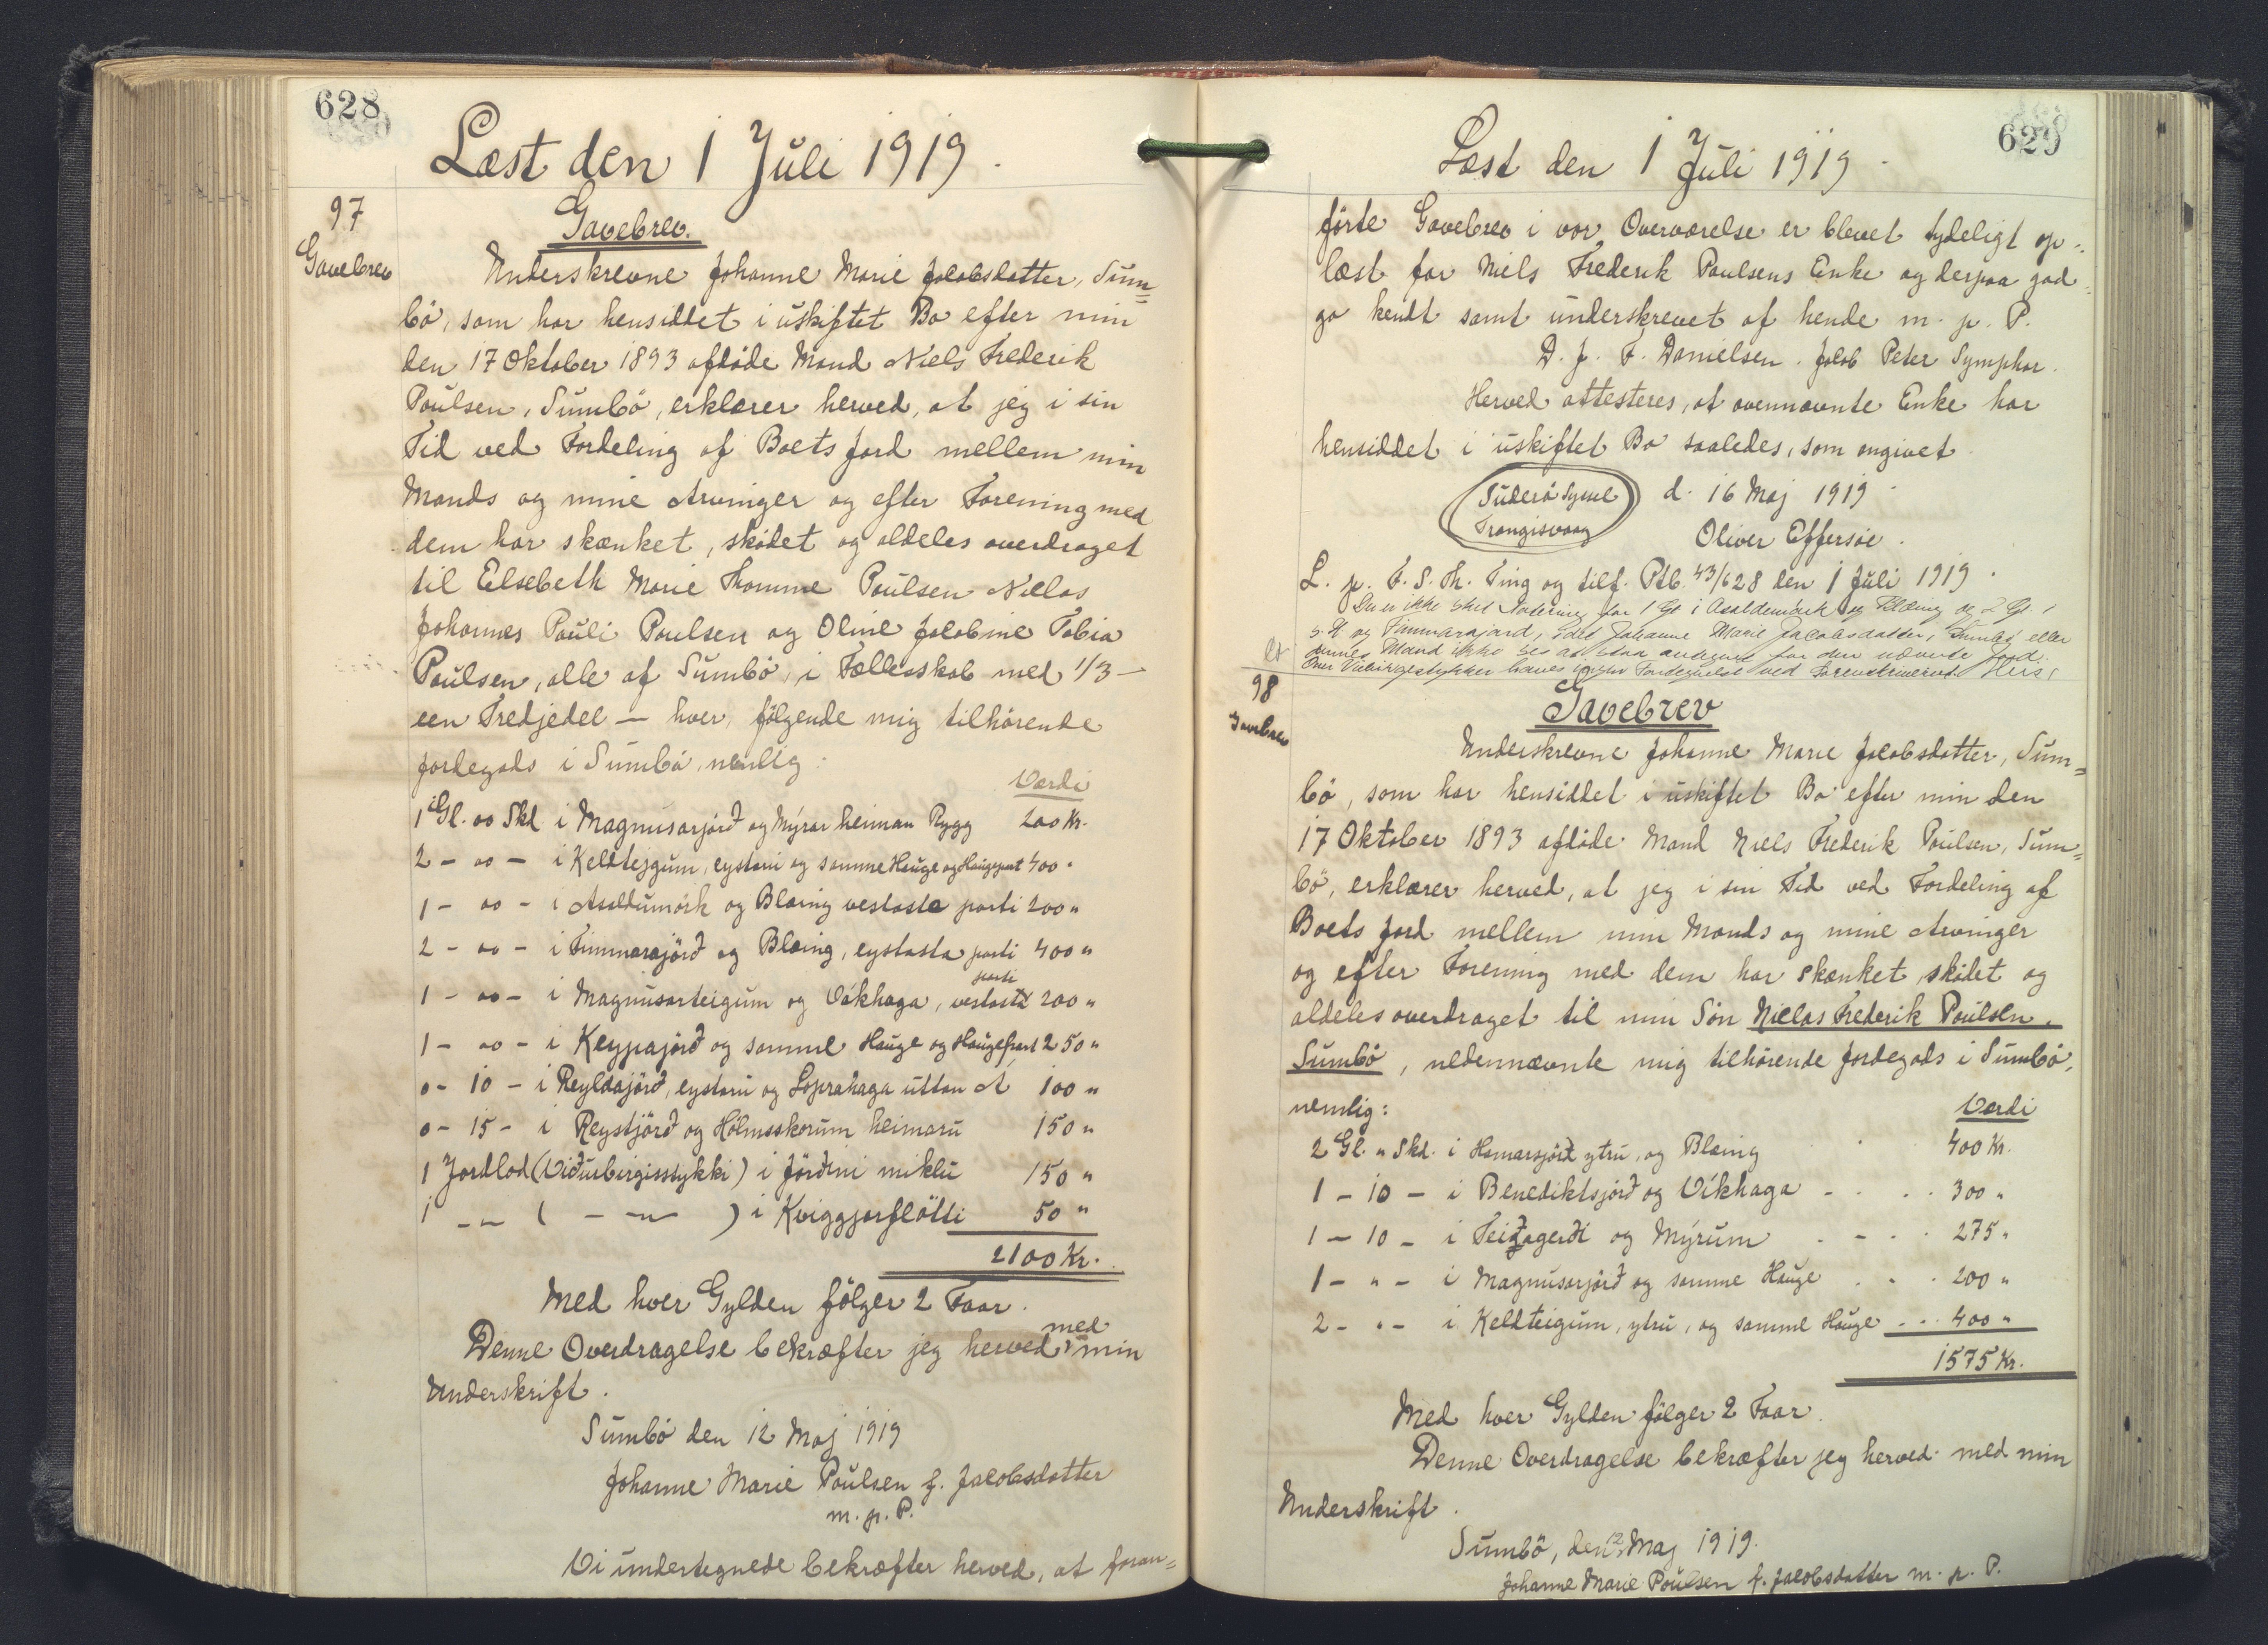 628
Læst den 1 Juli 1919.
97
Gavebrev
Gavebrev.
Underskrevne Johanne Marie Jakobsdatter, Sum=
bö, som har hensiddet i uskiftet Bo efter min
den 17 Oktober 1893 afdöde Mand Niels Frederik
Poulsen, Sumbö, erklærer herved, at jeg i sin
Tid ved Fordeling af Boets Jord mellem min
Mands og mine Arvinger og efter Forening med
dem har skænket, sködet og aldeles overdraget
til Elsebeth Marie Thomine Poulsen Niclas
Johannes Pauli Poulsen og Oline Jakobine Tobia
Poulsen, alle af Sumbö, i Fællesskab med 1/3 —
een Tredjedel — hver, fölgende mig tilhörende
Jordegods i Sumbö, nemlig:
Værdi
1 Gl. oo Skd i Magnusarjörð og Mýrar heiman Rygg 200 Kr.
2 - oo - i Keldtejgum, eystaru og samme Hauge og Haugepart 400 "
1 - oo - i Asaldumörk og Blæing vestasta parti 200 "
2 - oo - i Finnarajörð og Blæing, eystasta parti 400 "
1 - oo - i Magnusarteigum og Víkhaga, vestasta parti 200 "
1 - oo - i Keypajörð og samme Hauge og Haugepart 250 "
0 - 10 - i Reyldajörð, eystaru og Loprahaga uttan Á 100 "
0 - 15 - i Reystjörð og Hólmsskorum heimaru 150 "
1 Jordlod (Viðurbirgisstykki) i Jörðini miklu 150 "
1 -"- ( - -"- ) i Kviggjarflötti 50 "
2100 Kr.
Med hver Gylden fölger 2 Faar.
Denne Overdragelse bekræfter jeg herved med min
Underskrift.
Sumbö den 12 Maj 1919
Johanne Marie Poulsen f. Jacobsdatter
m. p. P.
Vi undertegnede bekræfter herved, at foran=
629
Læst den 1 Juli 1919.
förte Gavebrev i vor Overværelse er blevet tydeligt op=
læst for Niels Frederik Poulsens Enke og derpaa god=
go kendt samt underskrevet af hende m. p. P.
D. J. F. Danielsen. Jakob Peter Symphor.
Herved attesteres, at ovennævnte Enke har
hensiddet i uskiftet Bo saaledes, som angivet.
Suderö Syssel
Trangisvaag
d. 16 Maj 1919.
Oliver Effersøe.
L. p. F. S. Th. Ting og tilf. Ptb. 43/628 den 1 Juli 1919.
Der er ikke sket Notering for 1 Gl i Asaldumörk og Blæing og 2 Gl. i
og Finnarajørd, idet Johanne Marie Jacobsdatter, Sumbø eller
dennes Mand ikke ses at staa antegnet for den nævnte Jord.
Over Vidirgestykker haves ingen Fortegnelse ved Sorenskriveriet.
98
Gavebrev
Gavebrev
Underskrevne Johanne Marie Jakobsdatter, Sum=
bö, som har hensiddet i uskiftet Bo efter min den
17 Oktober 1893 afdöde Mand Niels Frederik Poulsen, Sum=
bö, erklærer herved, at jeg i sin Tid ved Fordeling af
Boets Jord mellem min Mands og mine Arvinger
og efter Forening med dem har skænket, sködet og
aldeles overdraget til min Sön Niclas Frederik Poulsen.
Sumbö, nedennævnte mig tilhörende Jordegods i Sumbö,
nemlig:
Værdi
2 Gl. " Skd. i Hamarsjörð ytru, og Blæing 400 Kr.
1 - 10 - i Benediktsjörð og Víkhaga - . . . 300 "
1 - 10 - i Teigagerði og Mýrum . - . . 275 "
1 - " - i Magnusarjörð og samme Hauge . . . 200 "
2 - " - i Keldteigum, ytru, og samme Hauge . . . 400 "
1575 Kr.
Med hver Gylden fölger 2 Faar.
Denne Overdragelse bekræfter jeg herved med min
Underskrift.
Sumbö, den 12 Maj 1919.
Johanne Marie Poulsen f. Jacobsdatter m. p. P.